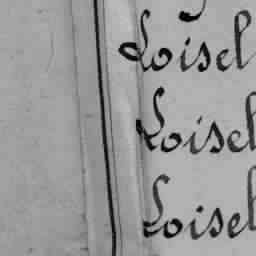 Loisel
Loisel
Loisel